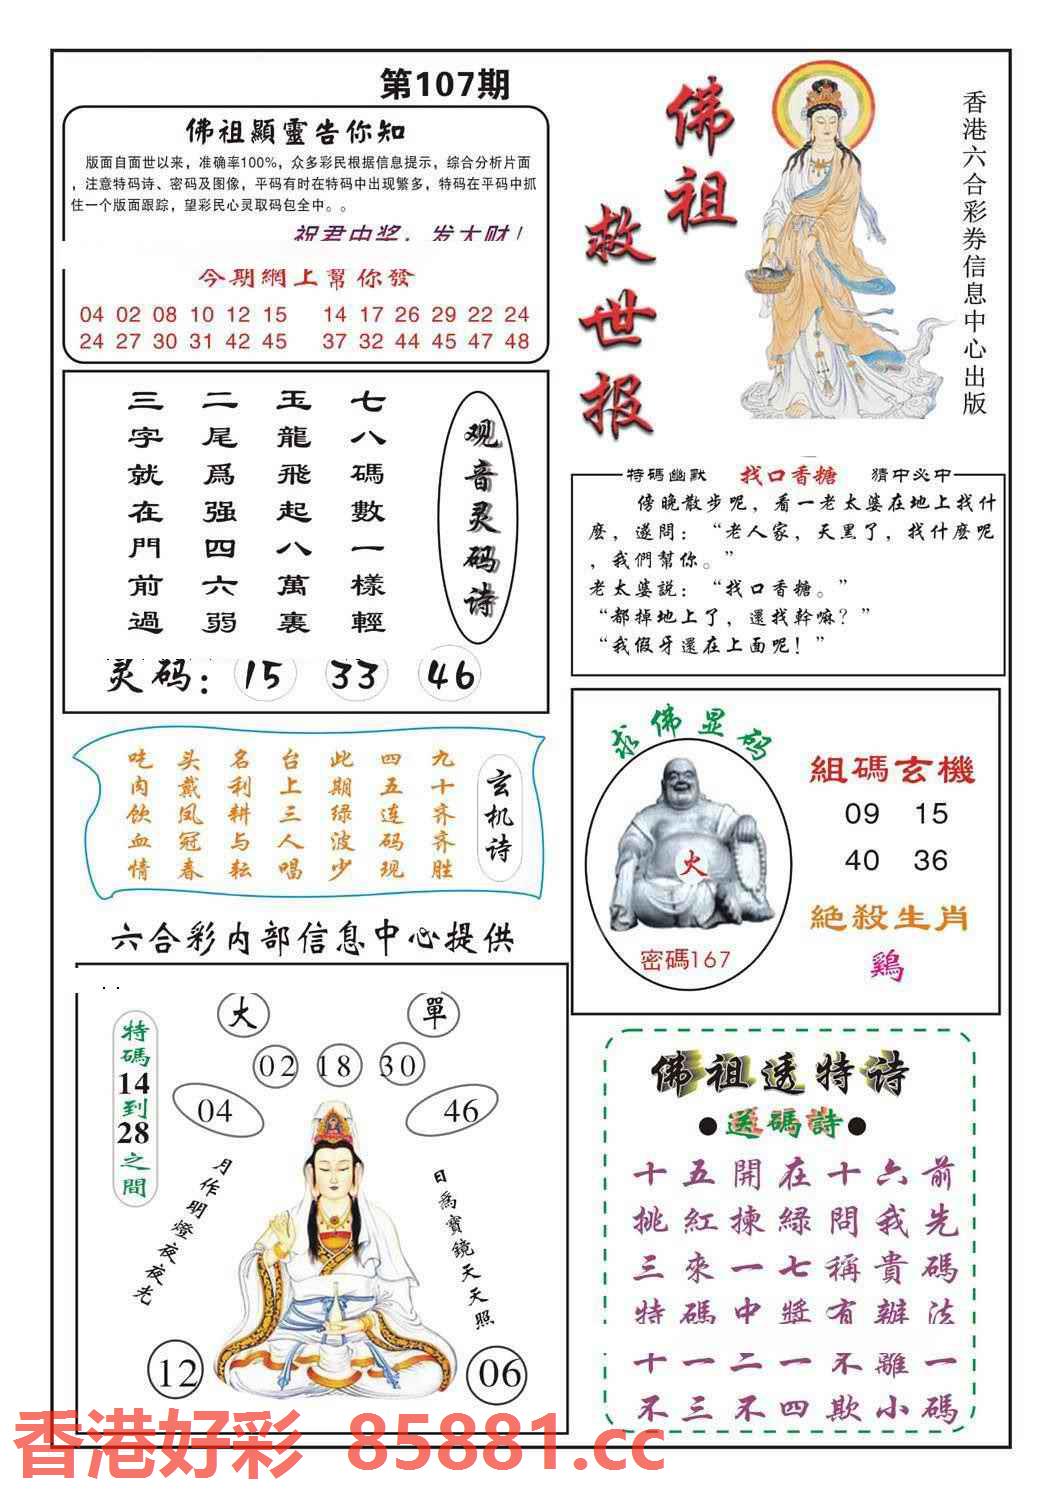 第107期
佛祖顯靈告你知
版面自面世以来，准确率100%，众多彩民根据信息提示，综合分析片面
，注意特码诗、密码及图像，平码有时在特码中出现繁多，特码在平码中抓
住一个版面跟踪，望彩民心灵取码包全中。。
祝君中奖，发大财！
今期網上幫你發
04 02 08 10 12 15 14 17 26 29 22 24
24 27 30 31 42 45 37 32 44 45 47 48
佛祖
救世报
香港六合彩券信息中心出版
观音灵码诗
七八碼數一樣輕
玉龍飛起八萬裏
二尾爲强四六弱
三字就在門前過
灵码：15 33 46
特碼幽默 找口香糖 猜中必中
傍晚散步呢，看一老太婆在地上找什
麽，遂問：“老人家，天黑了，找什麽呢
，我們幫你。”
老太婆説：“找口香糖。”
“都掉地上了，還找幹嘛？”
“我假牙還在上面呢！”
玄机诗
九十齐齐胜
四五连码现
此期绿波少
台上三人唱
名利耕与耘
头戴凤冠春
吃肉饮血情
求佛显码
火
密碼167
組碼玄機
09 15
40 36
絕殺生肖
鷄
六合彩内部信息中心提供
大 單
02 18 30
04 46
特碼14到28之間
月作明燈夜夜光
日爲寶鏡天天照
12 06
佛祖透特诗
●送碼詩●
十五開在十六前
挑紅揀綠問我先
三來一七稱貴碼
特碼中獎有辦法
十一二一不離一
不三不四欺小碼
香港好彩 85881.cc